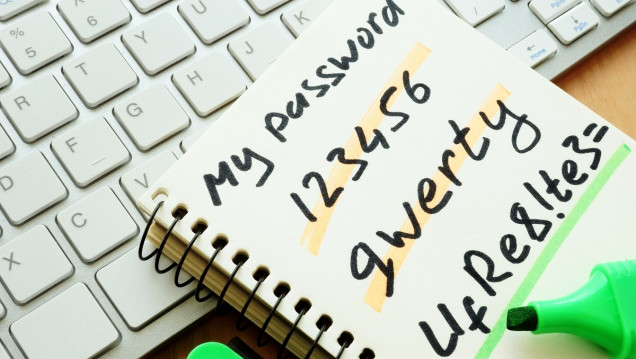 My password
123456
qwerty
UfRe8!te3=
%
5
R
T
Y
U
D
F
G
H
J
X
C
V